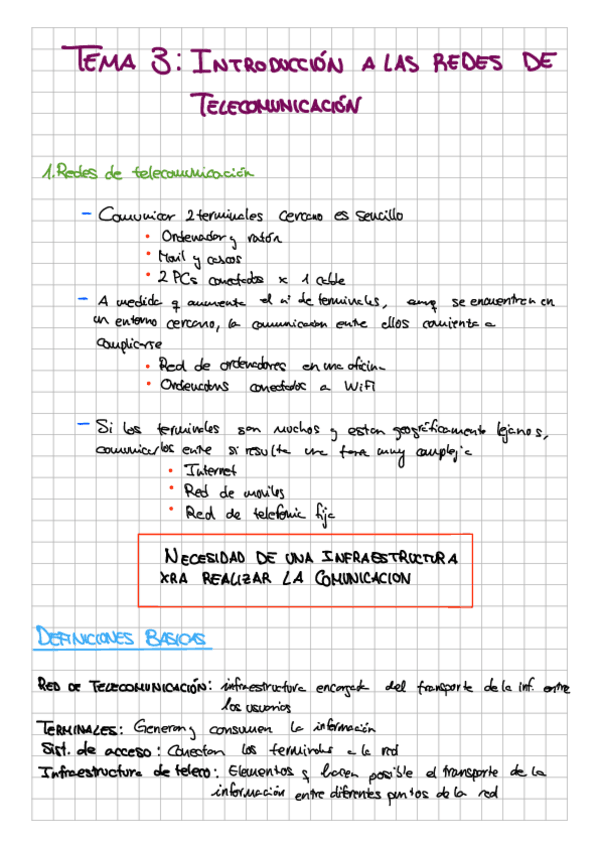 TEMA 3: INTRODUCCIÓN A LAS REDES DE
TELECOMUNICACIÓN
1. Redes de telecomunicación
- Comunicar 2 terminales cercano es sencillo
• Ordenador y ratón
• Movil y cascos
• 2 PCs conectados x 1 cable
- A medida q aumenta el nº de terminales, aunq se encuentren en
un entorno cercano, la comunicacion entre ellos comienza a
complicarse
• Red de ordenadores en una oficina
• Ordenadores conectados a WiFi
- Si los terminales son muchos y estan geográficamente lejanos,
comunicarlos entre si resulta una tarea muy compleja
• Internet
• Red de moviles
• Red de telefonia fija
NECESIDAD DE UNA INFRAESTRUCTURA
XRA REALIZAR LA COMUNICACION
DEFINICIONES BASICAS
RED DE TELECOMUNICACIÓN: infraestructura encargada del transporte de la inf. entre
los usuarios
TERMINALES: Generan y consumen la información
Sist. de acceso: Conectan los terminales a la red
Infraestructura de teleco: Elementos q hacen posible el transporte de la
información entre diferentes puntos de la red